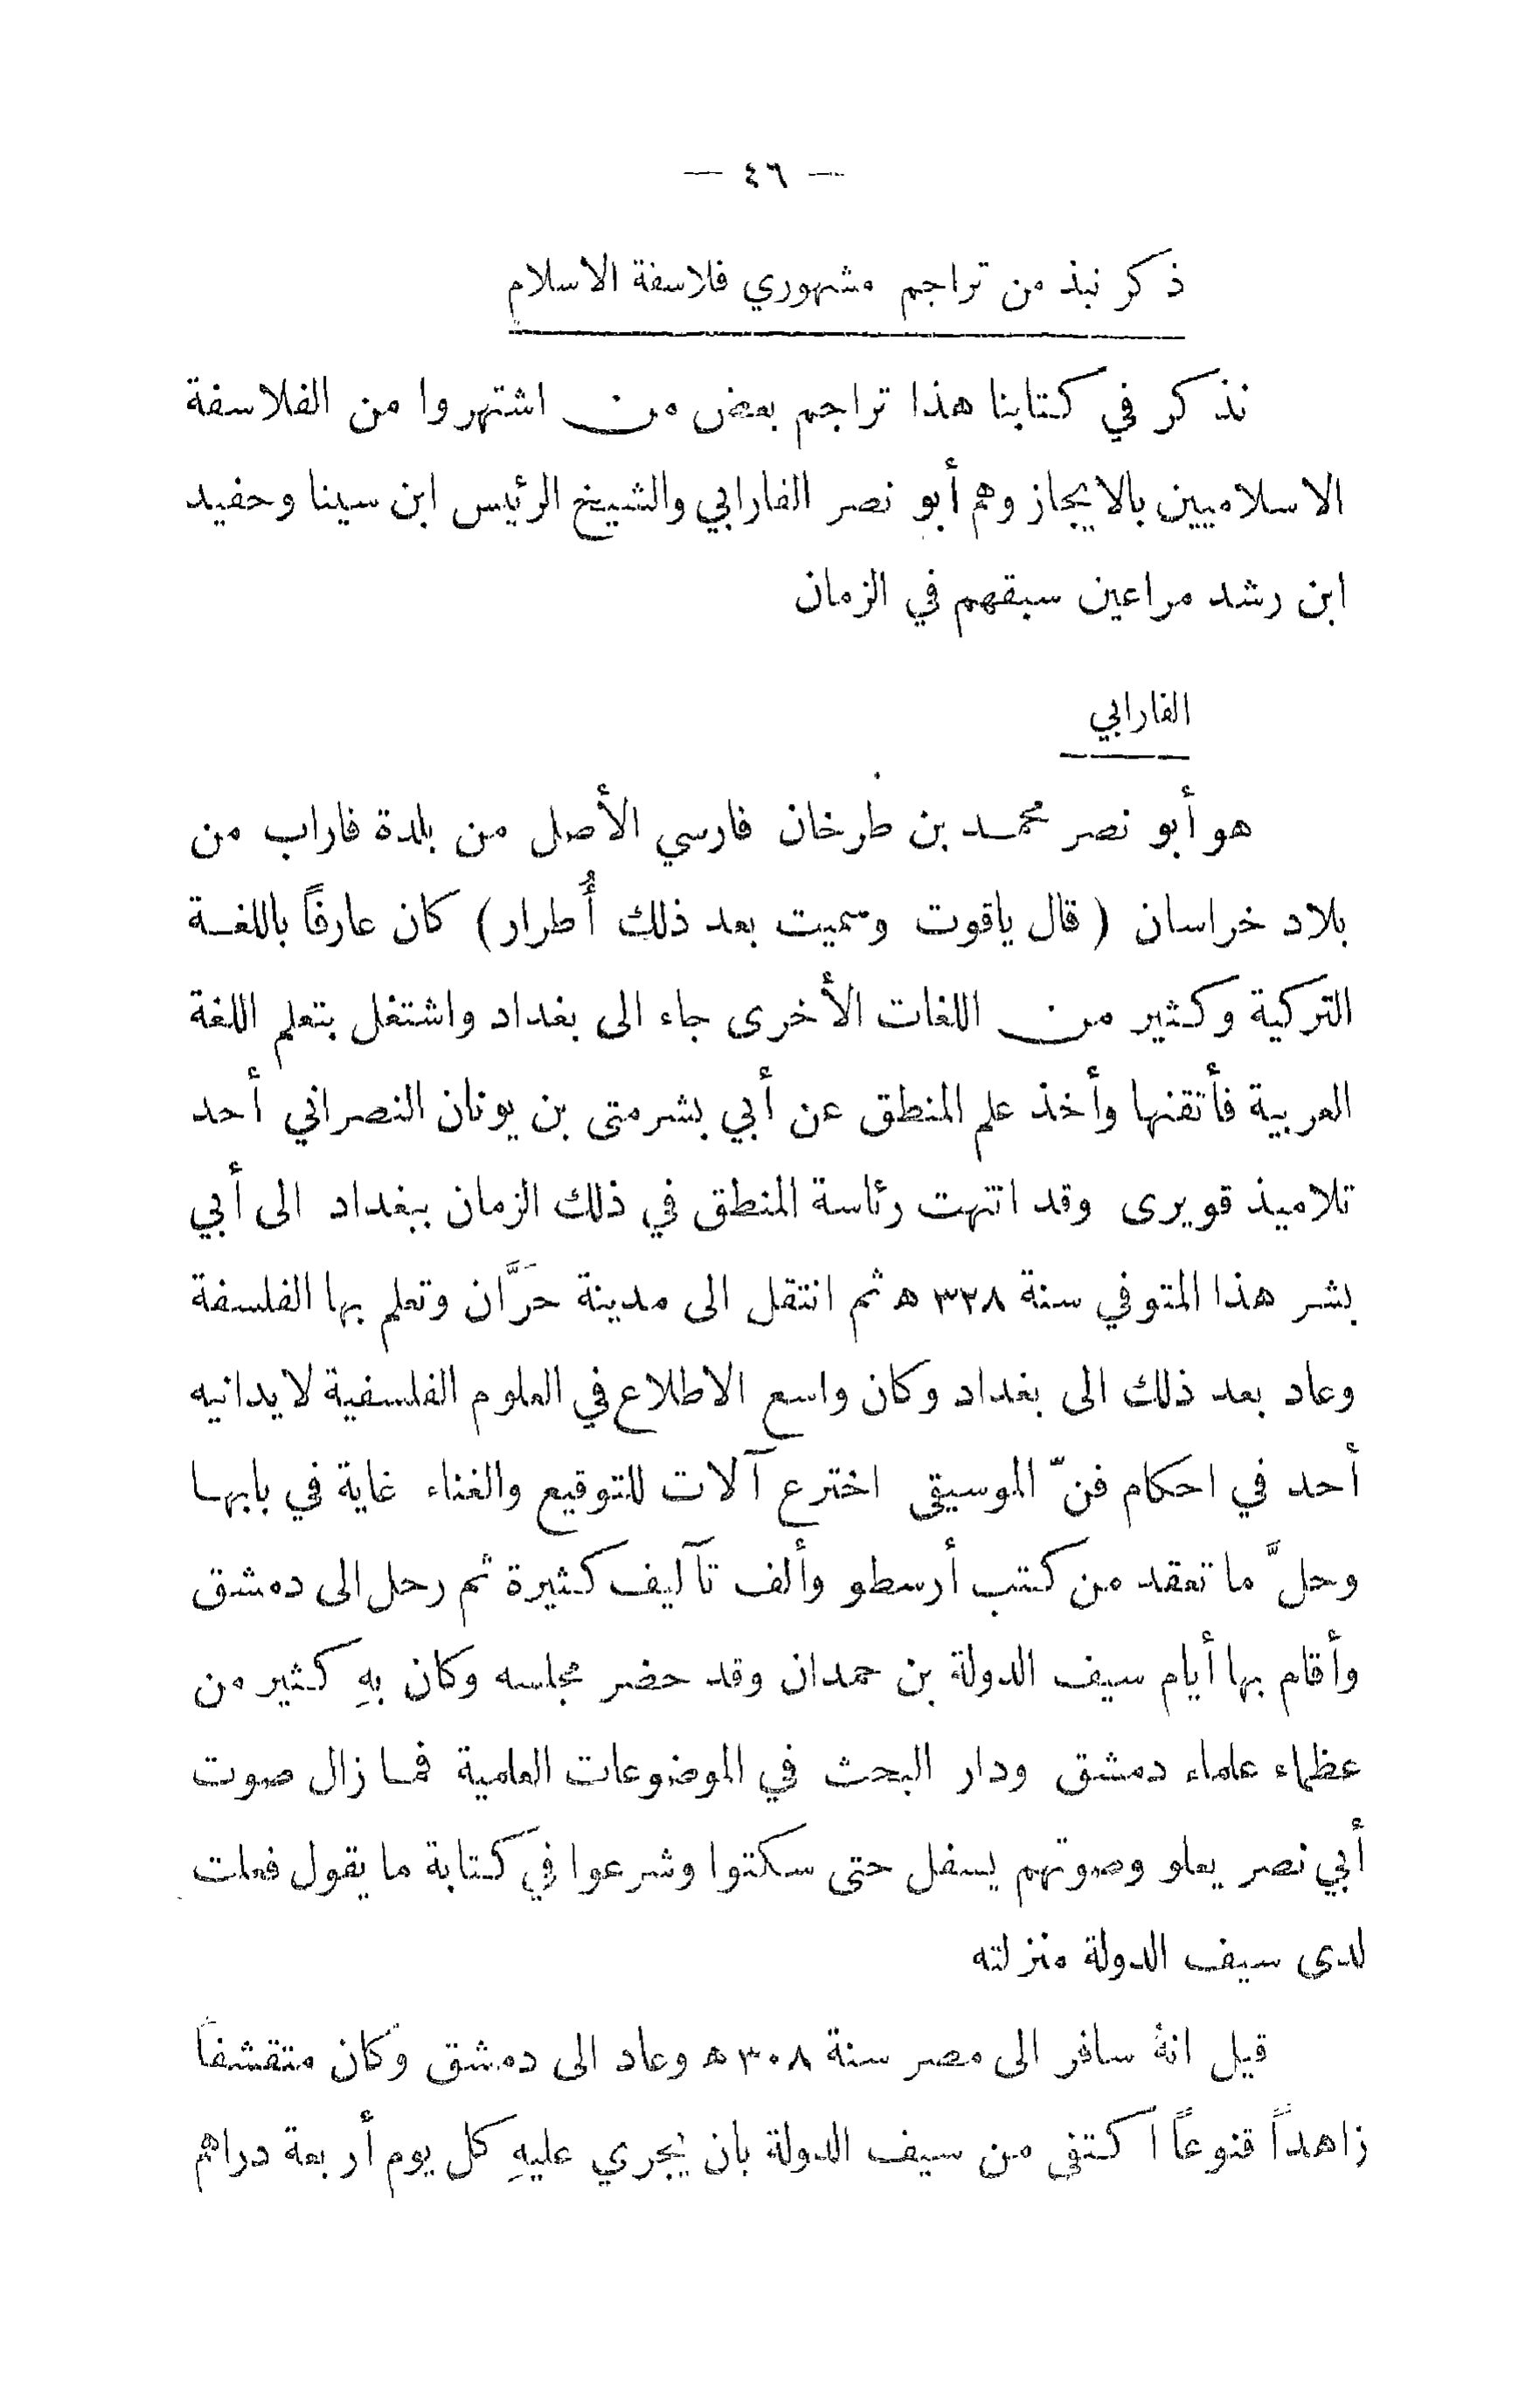 — ٤٦ —
ذكر نبذ من تراجم مشهوري فلاسفة الاسلام
نذكر في كتابنا هذا تراجم بعض من اشتهروا من الفلاسفة
الاسلاميين بالايجاز وهم أبو نصر الفارابي والشيخ الرئيس ابن سينا وحفيد
ابن رشد مراعين سبقهم في الزمان
الفارابي
هو أبو نصر محمد بن طرخان فارسي الأصل من بلدة فاراب من
بلاد خراسان ( قال ياقوت وسميت بعد ذلك أُطرار ) كان عارفاً باللغة
التركية وكثير من اللغات الأخرى جاء الى بغداد واشتغل بتعلم اللغة
العربية فأتقنها وأخذ علم المنطق عن أبي بشر متى بن يونان النصراني أحد
تلاميذ قويرى وقد انتهت رئاسة المنطق في ذلك الزمان ببغداد الى أبي
بشر هذا المتوفي سنة ٣٢٨ ه ثم انتقل الى مدينة حَرَّان وتعلم بها الفلسفة
وعاد بعد ذلك الى بغداد وكان واسع الاطلاع في العلوم الفلسفية لا يدانيه
أحد في احكام فنّ الموسيقى اخترع آلات للتوقيع والغناء غاية في بابها
وحلَّ ما تعقد من كتب أرسطو وألف تآليف كثيرة ثم رحل الى دمشق
وأقام بها أيام سيف الدولة بن حمدان وقد حضر مجلسه وكان بهِ كثير من
عظماء علماء دمشق ودار البحث في الموضوعات العلمية فما زال صوت
أبي نصر يعلو وصوتهم يسفل حتى سكتوا وشرعوا في كتابة ما يقول فعلت
لدى سيف الدولة منزلته
قيل انهُ سافر الى مصر سنة ٣٠٨ ه وعاد الى دمشق وكان متقشفاً
زاهداً قنوعاً اكتفى من سيف الدولة بان يُجري عليهِ كل يوم أربعة دراهم